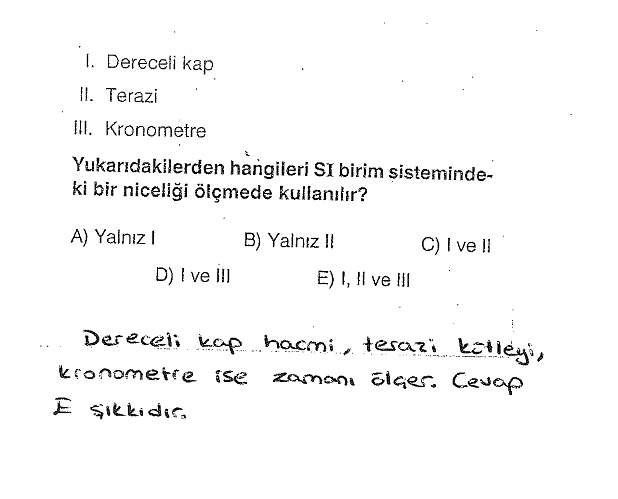 I. Dereceli kap
II. Terazi
III. Kronometre
Yukarıdakilerden hangileri SI birim sisteminde-
ki bir niceliği ölçmede kullanılır?
A) Yalnız I B) Yalnız II C) I ve II
D) I ve III E) I, II ve III
Dereceli kap hacmi, terazi kütleyi,
kronometre ise zamanı ölçer. Cevap
E şıkkıdır.